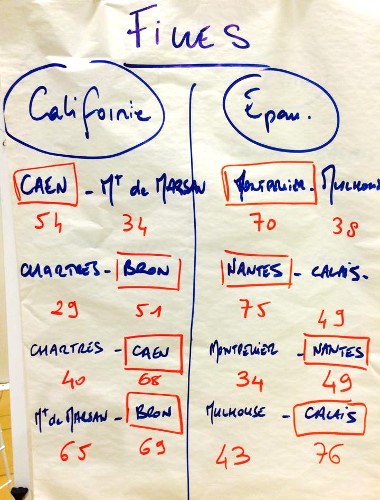 Filles
Californie
CAEN - Mt de MARSAN
54 34
CHARTRES - BRON
29 51
CHARTRES - CAEN
40 68
Mt de MARSAN - BRON
65 69
Épau.
MONTPELLIER - MULHOUSE
70 38
NANTES - CALAIS.
75 49
MONTPELLIER - NANTES
34 49
MULHOUSE - CALAIS
43 76